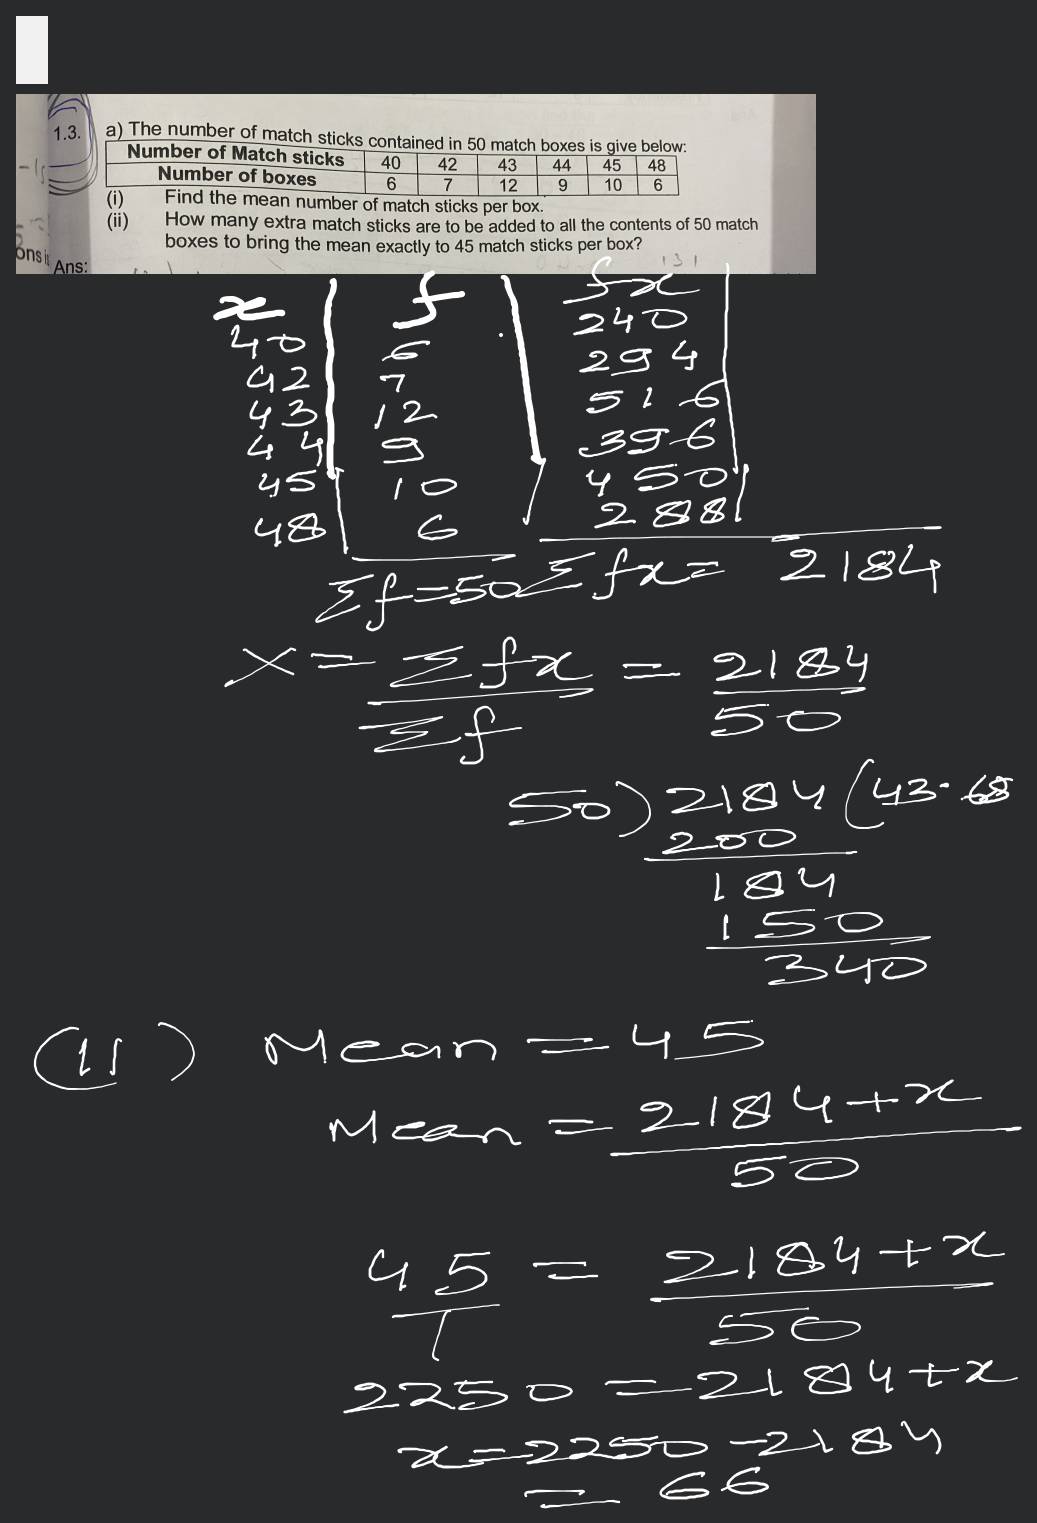 1.3. a) The number of match sticks contained in 50 match boxes is give below:
Number of Match sticks 40 42 43 44 45 48
Number of boxes 6 7 12 9 10 6
(i) Find the mean number of match sticks per box.
(ii) How many extra match sticks are to be added to all the contents of 50 match
boxes to bring the mean exactly to 45 match sticks per box?
Ans:
x f fx
40 6 240
42 7 294
43 12 516
44 9 396
45 10 450
48 6 288
Σf=50 Σfx= 2184
X = Σfx = 2184
Σf 50
50) 2184 (43.68
200
184
150
340
(11) Mean = 45
Mean = 2184+x
50
45 = 2184+x
1 50
2250 = 2184+x
x=2250-2184
= 66